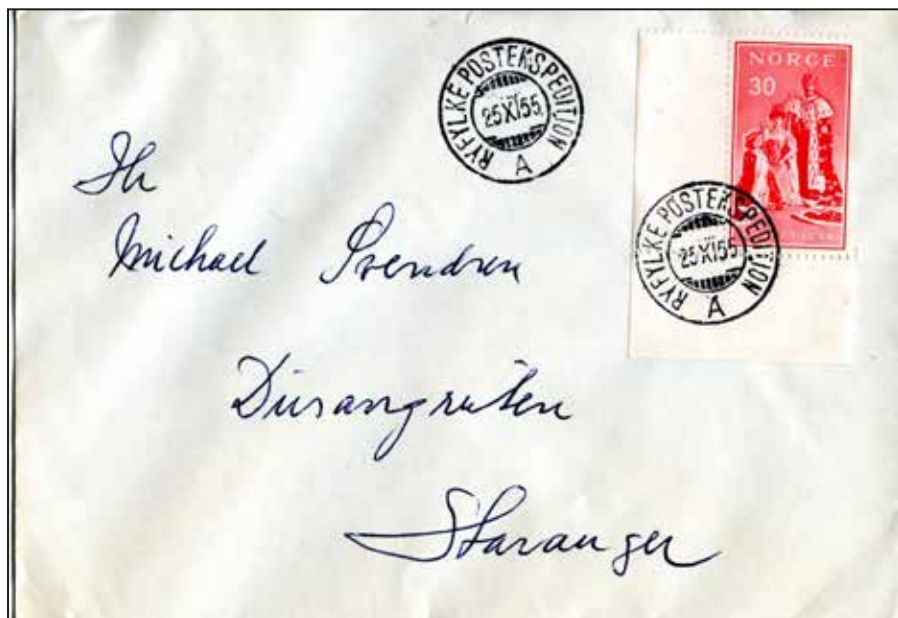 RYFYLKE POSTEKSPEDITION
25XI55
A
NORGE
30
RYFYLKE POSTEKSPEDITION
25XI55
A
Hr
Michael Svendsen
Stavanger